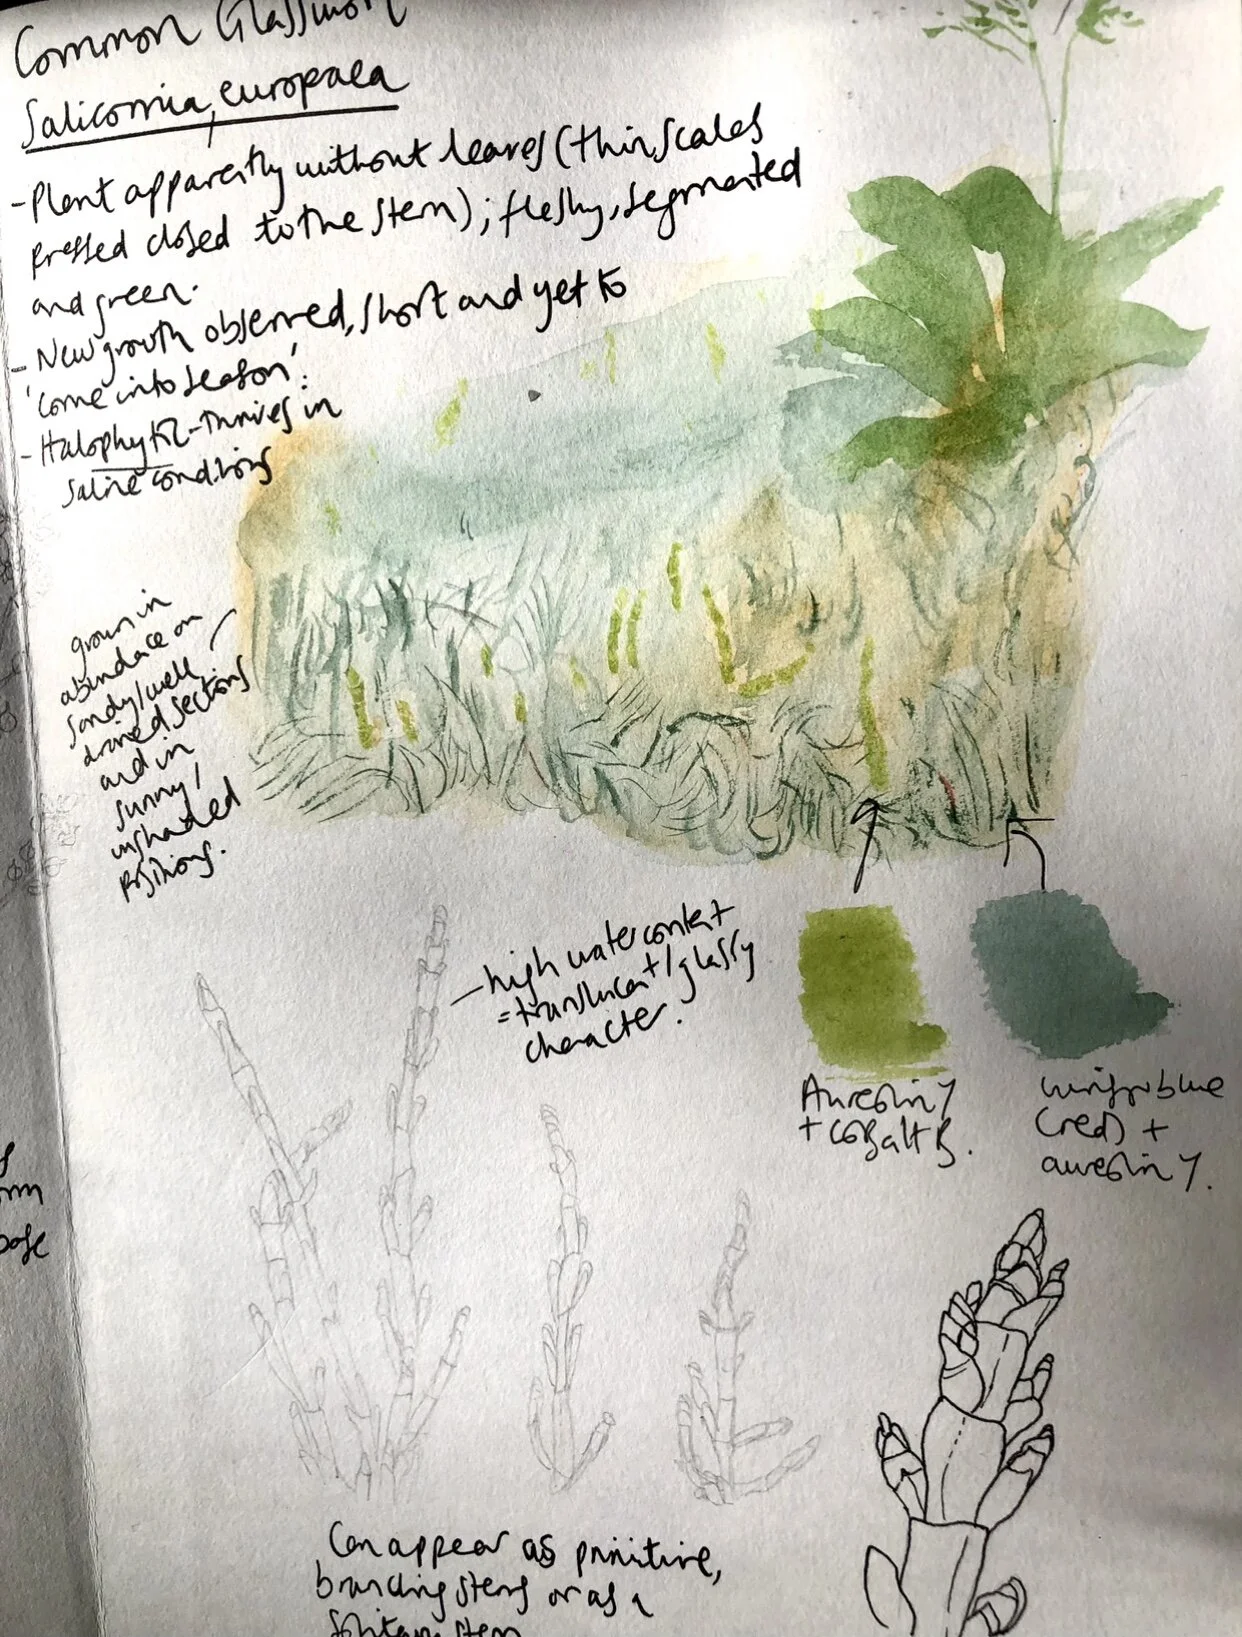 Common Glasswort
Salicornia europaea
- Plant apparently without leaves (thin scales
pressed closed to the stem); fleshy, segmented
and green.
- New growth observed, short and yet to
'come into season'.
- Halophytic - thrives in
saline conditions
grown in
abundace on
sandy/well
drained sections
and in
sunny/
unshaded
positions.
- high water content
= translucent/glassy
character.
Aureolin Y
+ cobalt B.
winsor blue
(red) +
aureolin Y.
Can appear as primitive,
branching stems or as a
solitary stem